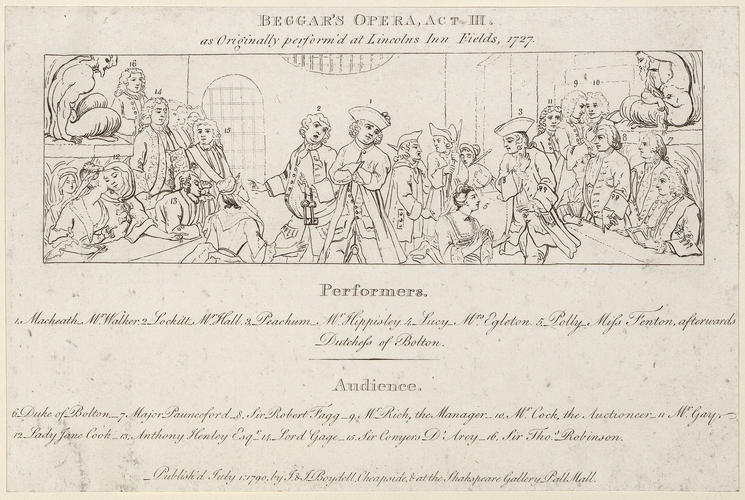 BEGGAR'S OPERA, ACT III.
as Originally perform'd at Lincolns Inn Fields, 1727.
16
14
15
12
13
2
1
3
5
11
9
10
8
Performers.
1. Macheath Mr. Walker. 2_Lockitt Mr. Hall. 3_Peachum_Mr. Hippisley. 4_Lucy_Mrs. Egleton. 5_Polly_Miſs Fenton, afterwards
Dutcheſs of Bolton.
Audience.
6_Duke of Bolton_7_Major Paunceford_8_Sir Robert Fagg_9_Mr. Rich, the Manager_10_Mr. Cock, the Auctioneer_11_Mr. Gay_
12_Lady Jane Cook_13_Anthony Henley Esqr. 14_Lord Gage_15_Sir Conyers D'Arcy_16_Sir Thos. Robinson.
_Publish'd July 1:1790, by J. & J. Boydell, Cheapside, & at the Shakspeare Gallery Pall Mall.